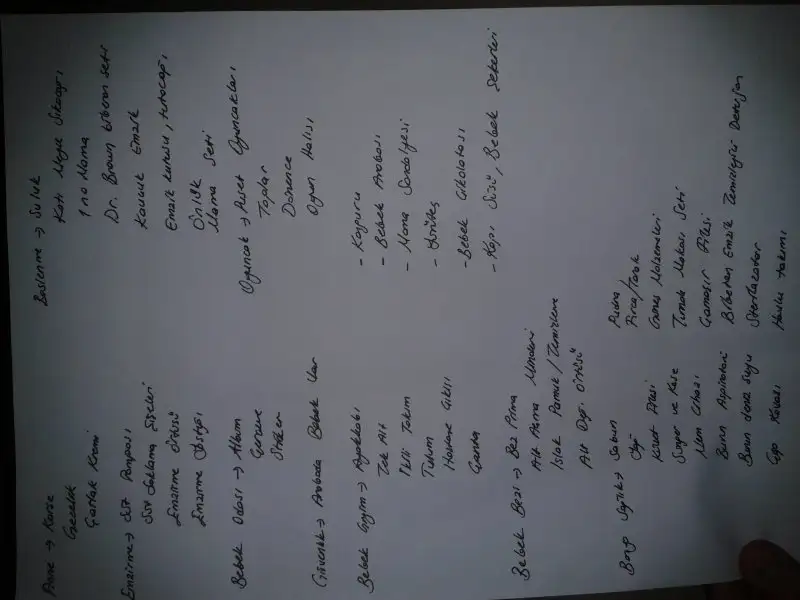 Anne → Korse
Gecelik
Çatlak Kremi
Emzirme → Süt Pompası
Süt Saklama Şişeleri
Emzirme Örtüsü
Emzirme Yastığı
Bebek Odası → Albüm
Çerçeve
Sticker
Güvenlik → Arabada Bebek Var
Bebek Giyim → Ayakkabı
Tek Alt
İkili Takım
Tulum
Hastane Çıkışı
Çanta
Bebek Bezi → Bez Prima
Alt Açma Minderi
Islak Pamuk / Temizleme
Alt Değ. Örtüsü
Banyo Sağlık → Sabun
Yağ
Küvet Filesi
Sünger ve Kese
Nem Cihazı
Burun Aspiratörü
Burun damla suyu
Çöp Kovası
Beslenme → Suluk
Katı Meyve Sıkacağı
1 no Mama
Dr. Brown biberon seti
Kauçuk Emzik
Emzik kutusu, tutacağı
Önlük
Mama Seti
Oyuncak → Puset Oyuncakları
Toplar
Dönence
Oyun Halısı
- Kapuru
- Bebek Arabası
- Mama Sandalyesi
- Yürüteç
- Bebek Çikolatası
- Kapı Süsü, Bebek Şekerleri
Pudra
Fırça/Tarak
Güneş Malzemeleri
Tırnak Makası Seti
Çamaşır Filesi
Biberon Emzik Temizleyici Deterjan
Sterilizatör
Havlu takımı